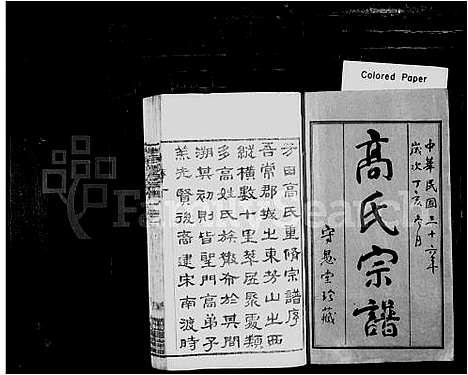 Colored Paper
中華民國三十六年
歲次丁亥冬月
高氏宗譜
守愚堂珍藏
芳田高氏重修宗譜序
吾常郡城之東芳山之西
縱横數十里萃居聚處類
多高姓氏族散布於其間
溯其初則皆聖門高弟子
羔先賢後裔建宋南渡時
FamilySearch